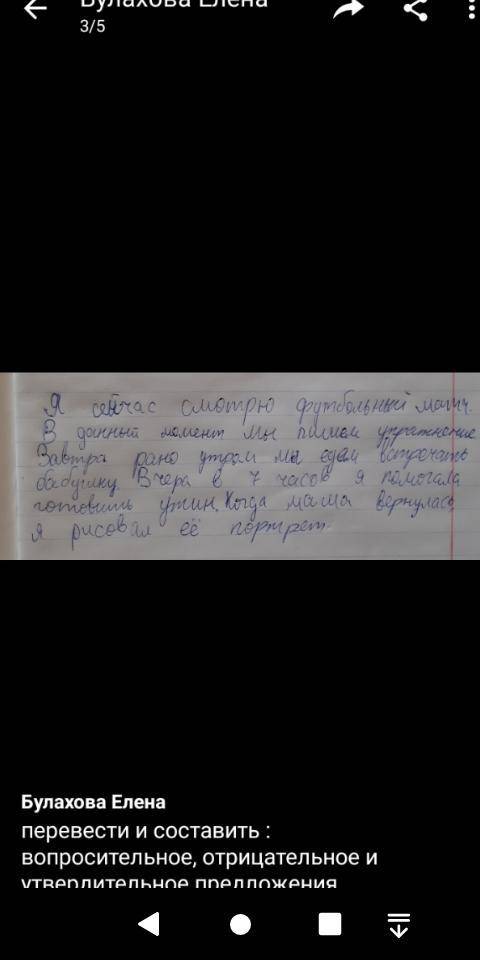 Булахова Елена
3/5
Я сейчас смотрю футбольный матч.
В данный момент мы пишем упражнение
Завтра рано утром мы едем встречать
бабушку. Вчера в 7 часов я помогала
готовить ужин. Когда мама вернулась
я рисовал её портрет.
Булахова Елена
перевести и составить :
вопросительное, отрицательное и
утвердительное предложения